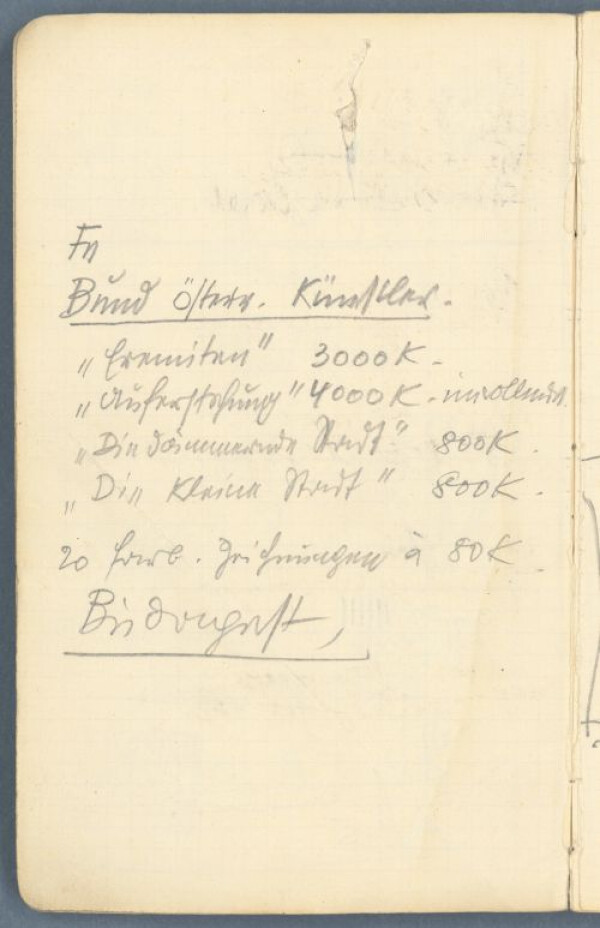 Bund Österr. Künstler.
„Eremiten" 3000 K -
„Auferstehung" 4000 K - unvollendet.
„Die dämmernde Stadt" 800 K.
„Die kleine Stadt" 800 K.
20 farb. Zeichnungen à 80 K.
Budapest,